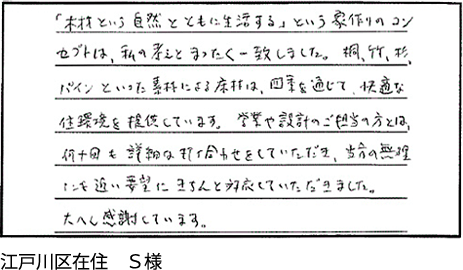 「木材という自然とともに生活する」という家作りのコン
セプトは、私の考えとまったく一致しました。桐、竹、杉、
パインといった素材による床材は、四季を通じて、快適な
住環境を提供しています。営業や設計のご担当の方とは、
何十回も詳細な打合わせをしていただき、当方の無理
にも近い要望にきちんと対応していただきました。
大へん感謝しています。
江戸川区在住　Ｓ様